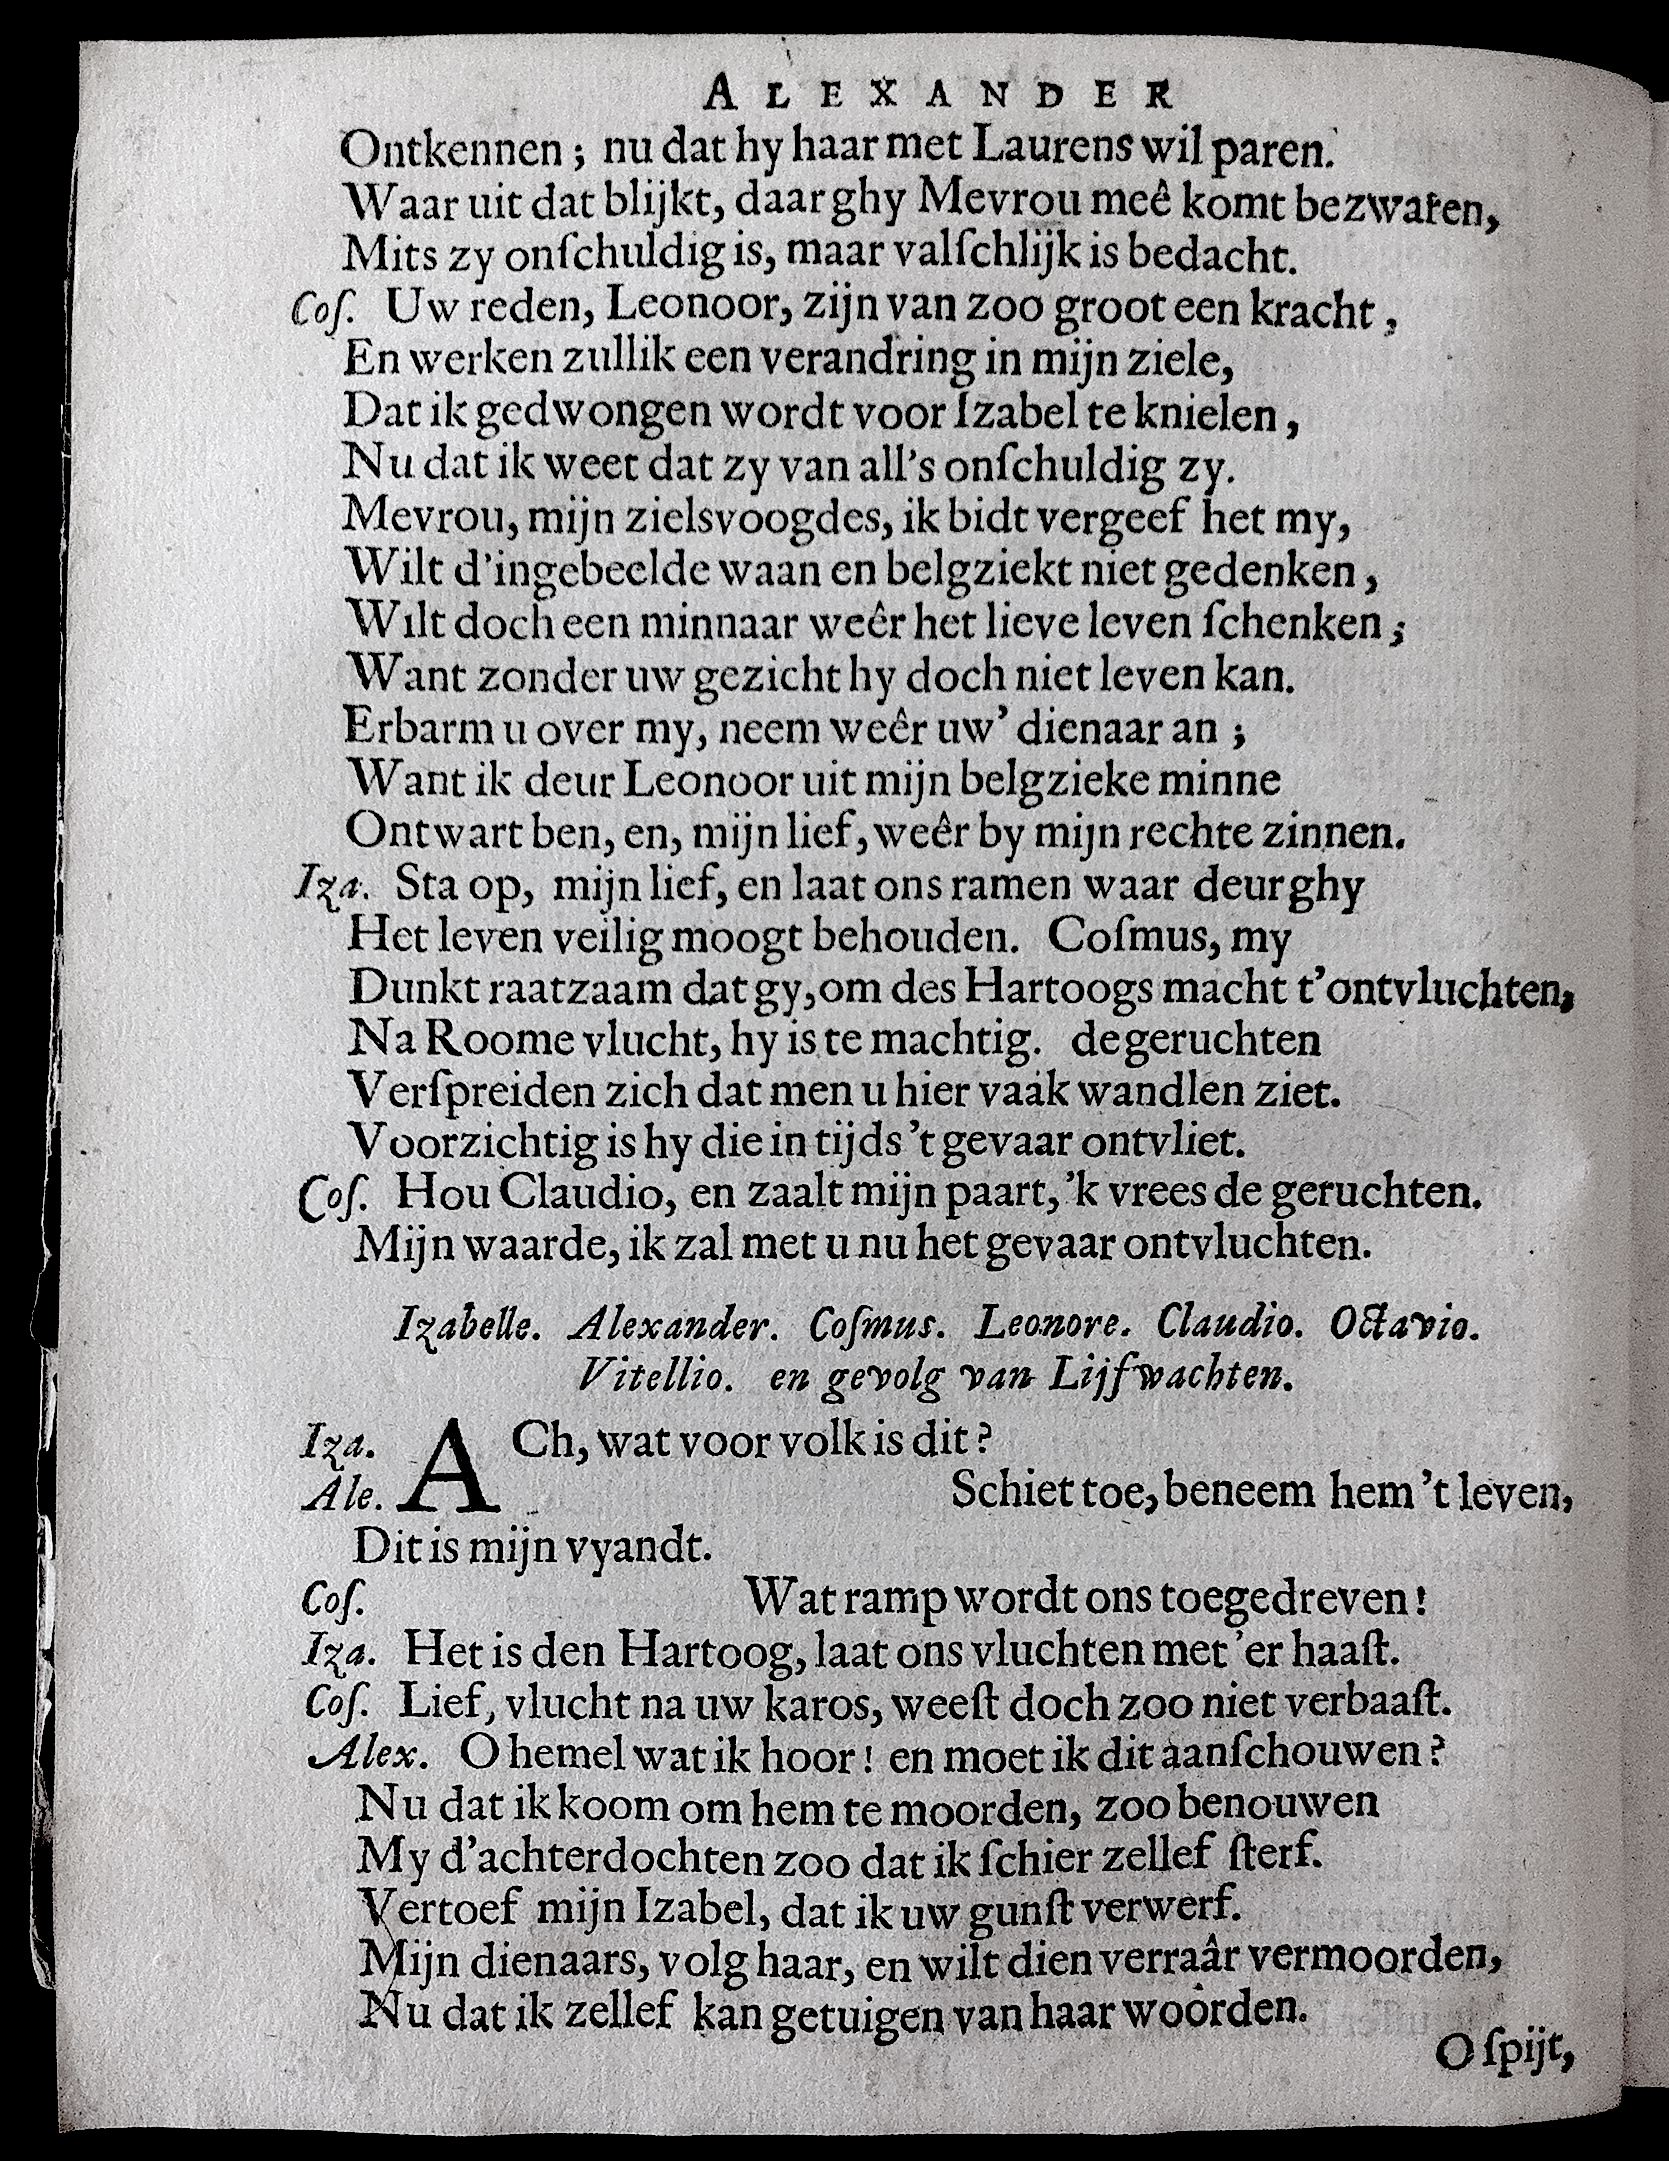 ALEXANDER
Ontkennen; nu dat hy haar met Laurens wil paren.
Waar uit dat blijkt, daar ghy Mevrou meê komt bezwaren,
Mits zy onſchuldig is, maar valſchlijk is bedacht.
Coſ. Uw reden, Leonoor, zijn van zoo groot een kracht,
En werken zullik een verandring in mijn ziele,
Dat ik gedwongen wordt voor Izabel te knielen,
Nu dat ik weet dat zy van all's onſchuldig zy.
Mevrou, mijn zielsvoogdes, ik bidt vergeef het my,
Wilt d'ingebeelde waan en belgziekt niet gedenken,
Wilt doch een minnaar weêr het lieve leven ſchenken;
Want zonder uw gezicht hy doch niet leven kan.
Erbarm u over my, neem weêr uw' dienaar an;
Want ik deur Leonoor uit mijn belgzieke minne
Ontwart ben, en, mijn lief, weêr by mijn rechte zinnen.
Iza. Sta op, mijn lief, en laat ons ramen waar deur ghy
Het leven veilig moogt behouden. Coſmus, my
Dunkt raatzaam dat gy, om des Hartoogs macht t'ontvluchten,
Na Roome vlucht, hy is te machtig. de geruchten
Verſpreiden zich dat men u hier vaak wandlen ziet.
Voorzichtig is hy die in tijds 't gevaar ontvliet.
Coſ. Hou Claudio, en zaalt mijn paart, 'k vrees de geruchten.
Mijn waarde, ik zal met u nu het gevaar ontvluchten.
Izabelle. Alexander. Coſmus. Leonore. Claudio. Octavio.
Vitellio. en gevolg van Lijfwachten.
Iza. ACh, wat voor volk is dit?
Ale. Schiet toe, beneem hem 't leven,
Dit is mijn vyandt.
Coſ. Wat ramp wordt ons toegedreven!
Iza. Het is den Hartoog, laat ons vluchten met 'er haaſt.
Coſ. Lief, vlucht na uw karos, weeſt doch zoo niet verbaaſt.
Alex. O hemel wat ik hoor! en moet ik dit aanſchouwen?
Nu dat ik koom om hem te moorden, zoo benouwen
My d'achterdochten zoo dat ik ſchier zellef ſterf.
Vertoef mijn Izabel, dat ik uw gunſt verwerf.
Mijn dienaars, volg haar, en wilt dien verraâr vermoorden,
Nu dat ik zellef kan getuigen van haar woorden.
O ſpijt,